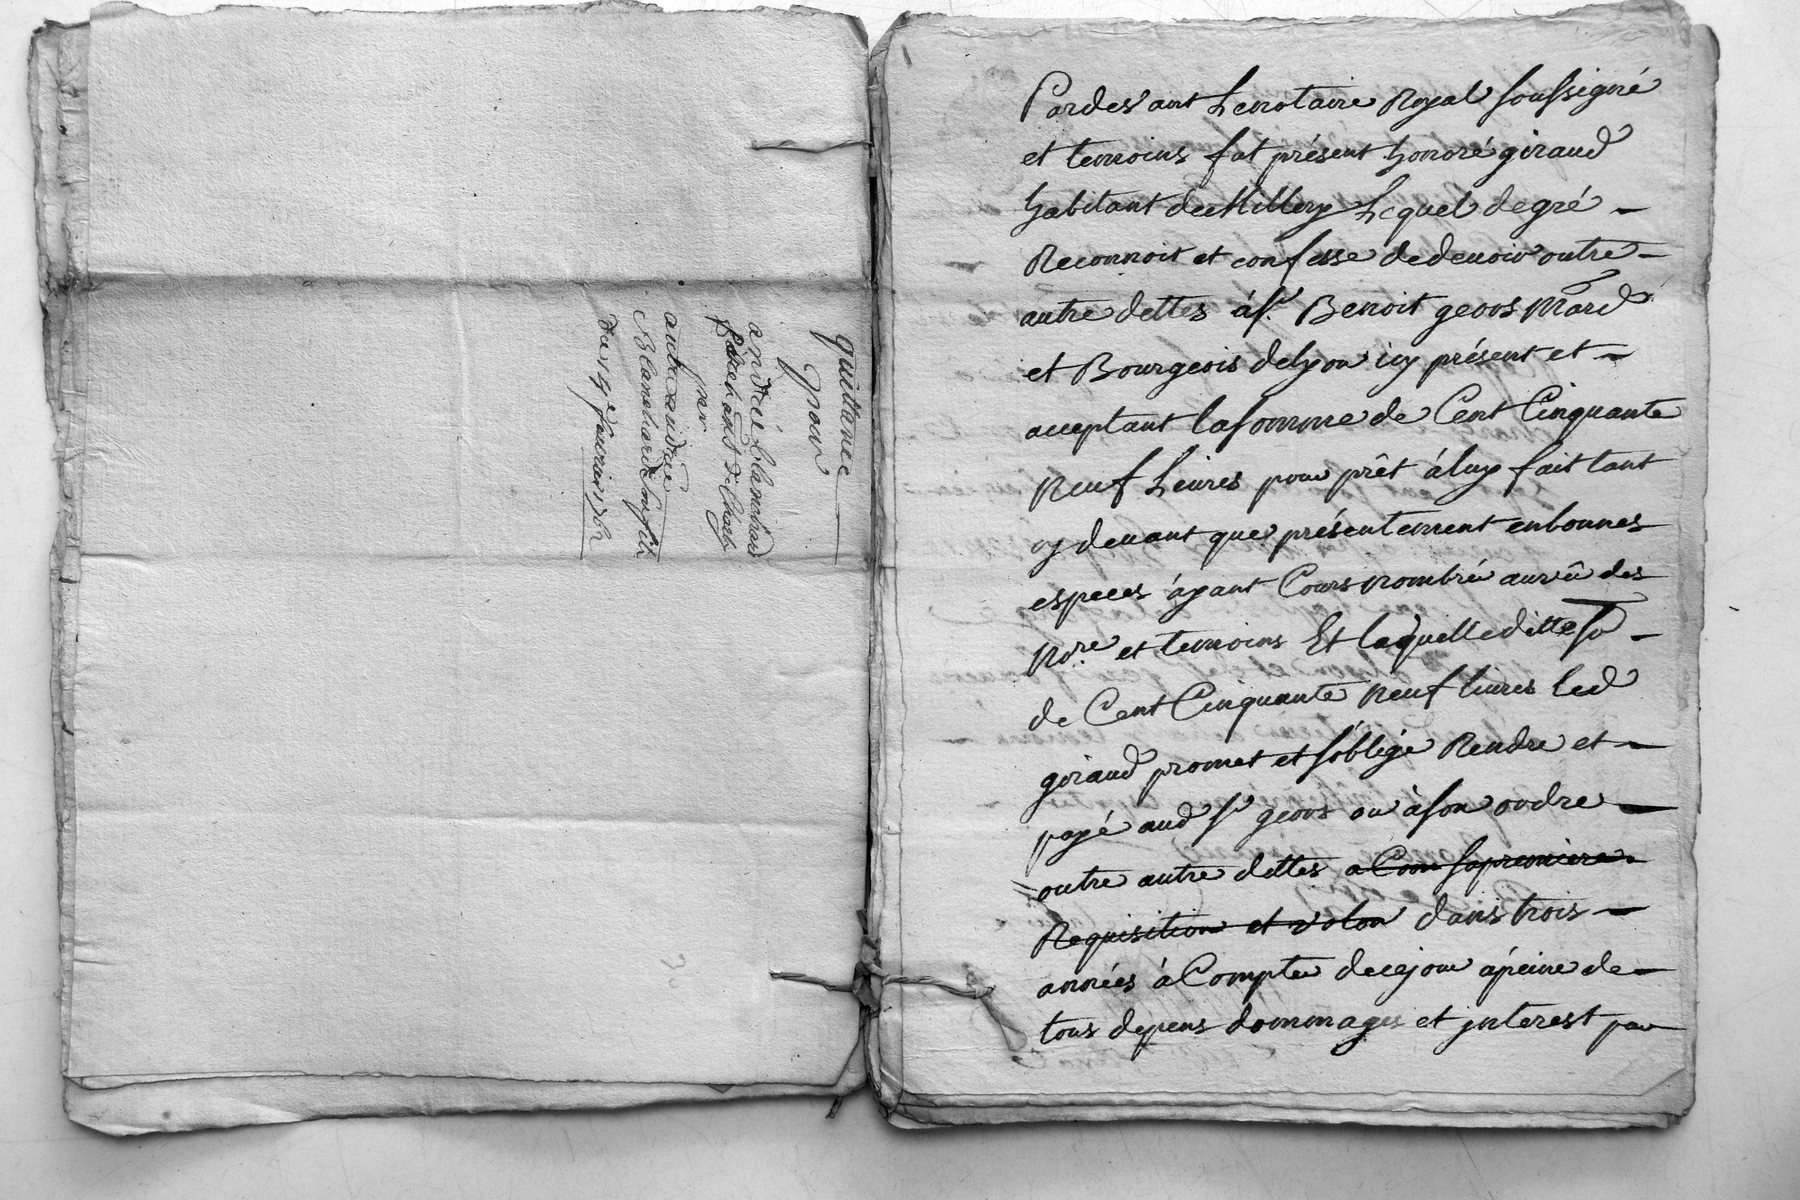 quittance
pour
andré blanchard
par
autre andrée
Blanchard son fils
du 19e feurier 1762
Pardevant Le notaire Royal soussigné
et temoins fut présent honoré giraud
habitant de Millery Lequel de gré
Reconnoit et confesse de devoir outre
autre dettes à sr. Benoit geovs Mard
et Bourgeois de Lyon icy présent et
acceptant la somme de Cent Cinquante
neuf Livres pour prêt à luy fait tant
cy devant que présentement en bonnes
especes áyant Cours nombrée au vû des
Nore et temoins Et laquelle ditte so
de Cent Cinquante neuf livres led
giraud promet et s'oblige Rendre et
payé aud sr geovs ou à son ordre
outre autre dettes a Com sa premiere
Requisition et volon dans trois
années à Compter de ce jour á peine de
tous depens dommages et jnterest par